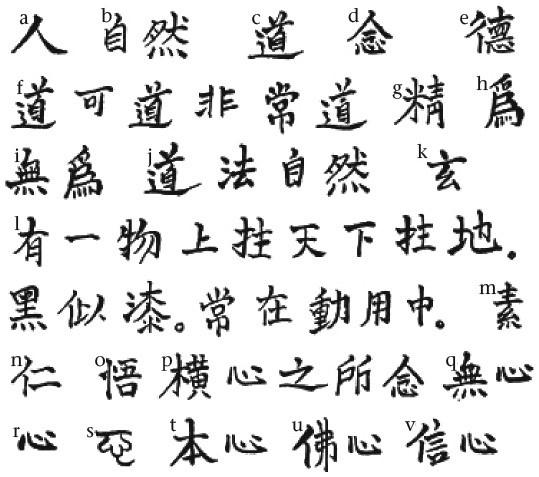 a人 b自然 c道 d念 e德
f道可道非常道 g精 h爲
i無爲 j道法自然 k玄
l有一物上拄天下拄地.
黑似漆。常在動用中。 m素
n仁 o悟 p橫心之所念 q無心
r心 s t本心 u佛心 v信心